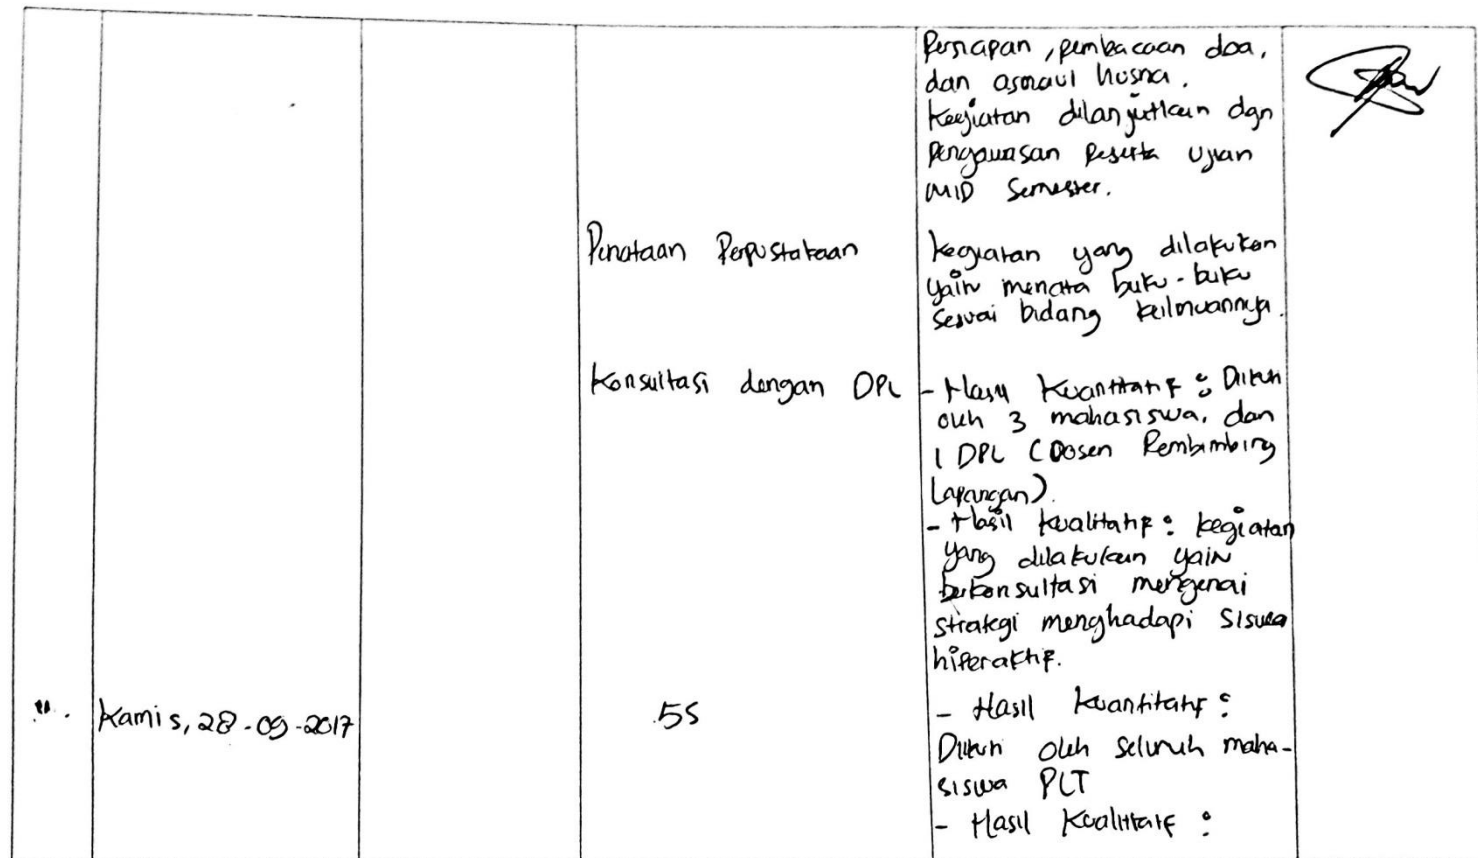 Persiapan, pembacaan doa,
dan asmaul husna.
Kegiatan dilanjutkan dgn
Pengawasan Peserta Ujian
MID Semester.
Penataan Perpustakaan
kegiatan yang dilakukan
yaitu menata buku-buku
sesuai bidang keilmuannya.
Konsultasi dengan DPL
- Hasil Kuantitatif : Diikuti
oleh 3 mahasiswa, dan
1 DPL (Dosen Pembimbing
Lapangan).
- Hasil kualitatif : kegiatan
yang dilakukan yaitu
berkonsultasi mengenai
strategi menghadapi siswa
hiperaktif.
Kamis, 28-09-2017
5S
- Hasil kuantitatif :
Diikuti oleh seluruh maha-
siswa PLT
- Hasil Kualitatif :